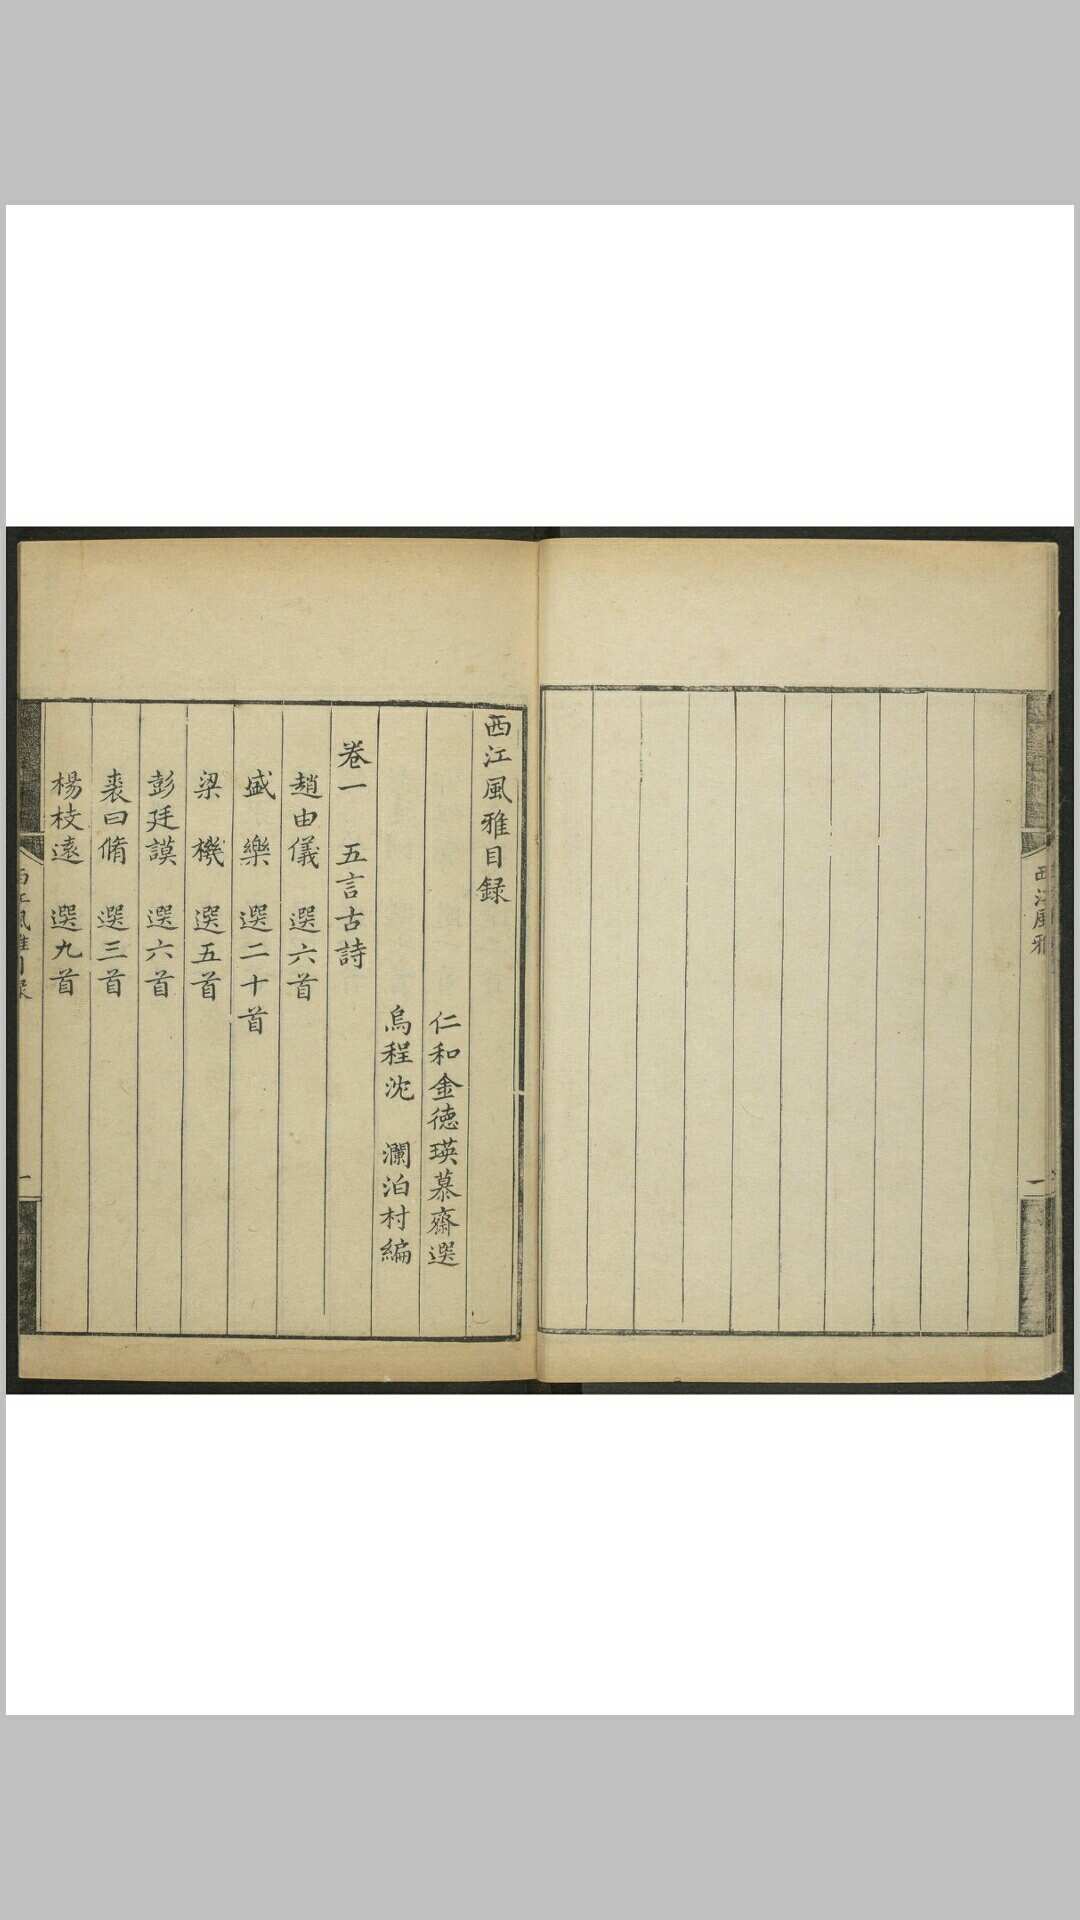 西江風雅
一
西江風雅目録
仁和金德瑛慕齋選
烏程沈 瀾泊村編
卷一 五言古詩
趙由儀 選六首
盛樂 選二十首
梁機 選五首
彭廷謨 選六首
裘曰脩 選三首
楊枝遠 選九首
一